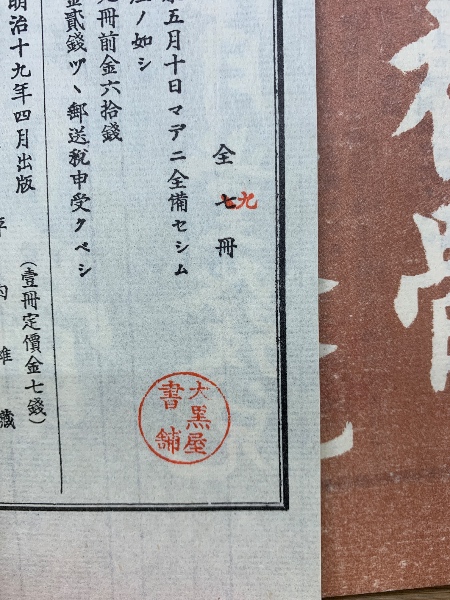 全七九冊
五月十日マデニ全備セシム
ノ如シ
冊前金六拾錢
貳錢ヅヽ郵送税申受クベシ
(壹冊定價金七錢)
明治十九年四月出版
内雄藏
大黒屋
書舖